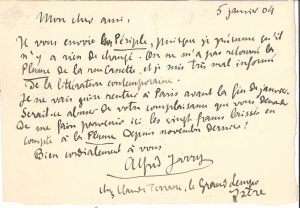 5 janvier 04
Mon cher ami,
Je vous envoie les Périple, puisque je présume qu'il
n'y a rien de changé. On ne m'a pas retourné la
Plume de la rencontre, et je suis très mal informé
de la littérature contemporaine.
Je ne vais guère rentrer à Paris avant la fin de janvier.
Serait-ce abuser de votre complaisance que vous demander
de me faire parvenir ici les vingt francs laissés en
compte à la Plume depuis novembre dernier?
Bien cordialement à vous
Alfred Jarry
chez Claude Terrasse, le Grand-Lemps
Isère